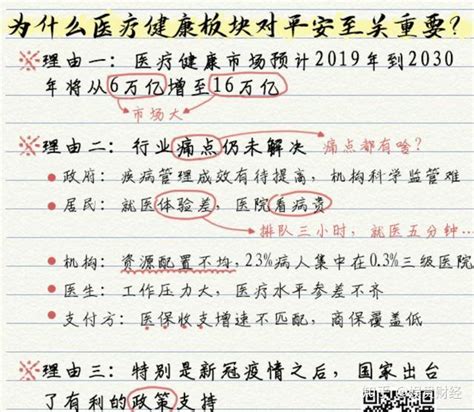 为什么医疗健康板块对平安至关重要？
※理由一：医疗健康市场预计2019年到2030
年将从6万亿增至16万亿
市场大
※理由二：行业痛点仍未解决 痛点都有啥？
• 政府：疾病管理成效有待提高，机构科学监管难
• 居民：就医体验差，医院看病贵
排队三小时，就医五分钟…
• 机构：资源配置不均，23%病人集中在0.3%三级医院
• 医生：工作压力大，医疗水平参差不齐
• 支付方：医保收支增速不匹配，商保覆盖低
※理由三：特别是新冠疫情之后，国家出台
了有利的政策支持